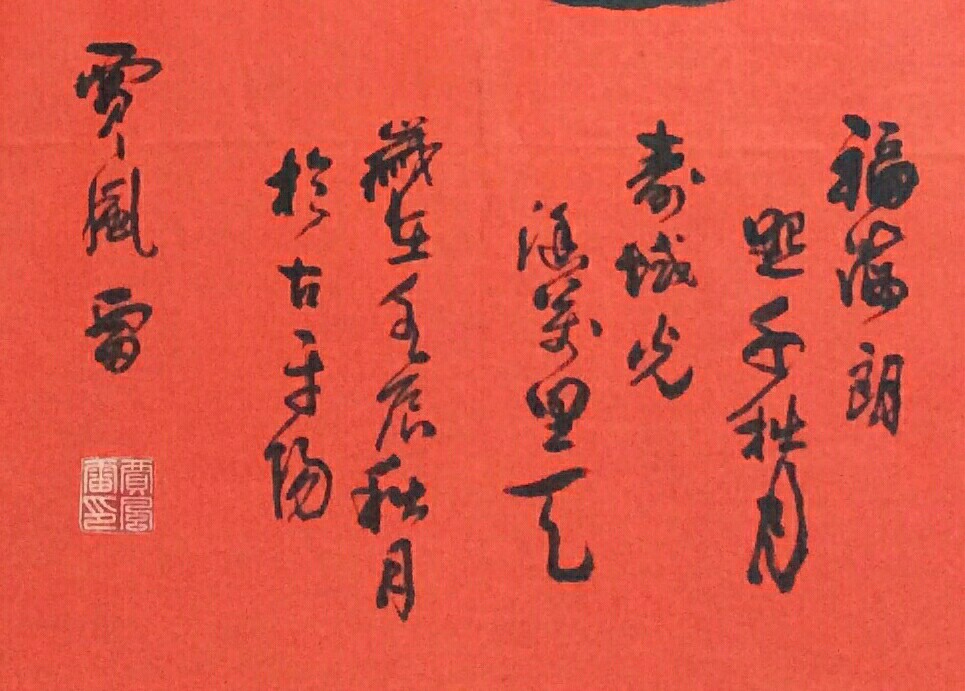 福海朗
照千秋月
壽域光
涵萬里天
歲在壬辰秋月
於古平陽
賈風雷
賈風雷印